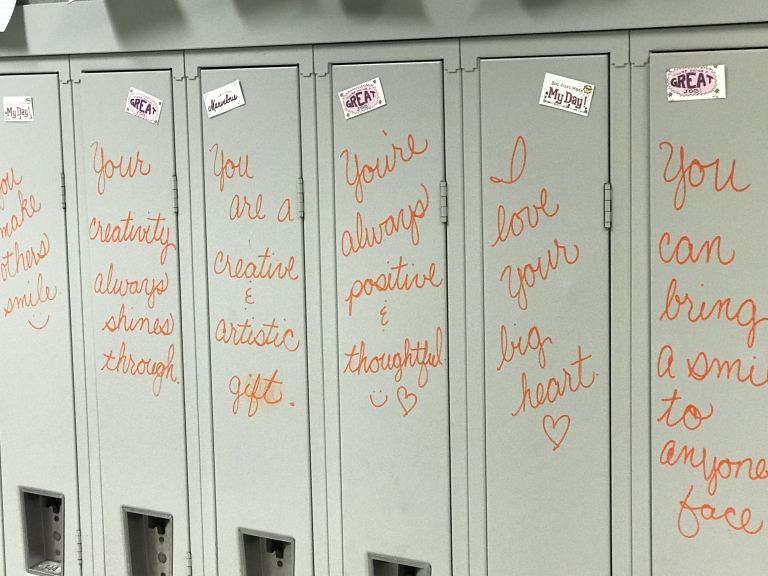 My Day!
you
make
others
smile.
GREAT
Your
creativity
always
shines
through.
Marvelous
You
are a
creative
&
artistic
gift.
GREAT
JOB
You're
always
positive
&
thoughtful
You Just Made
My Day!
I
love
your
big
heart.
GREAT
JOB
You
can
bring
a smi
to
anyone
face